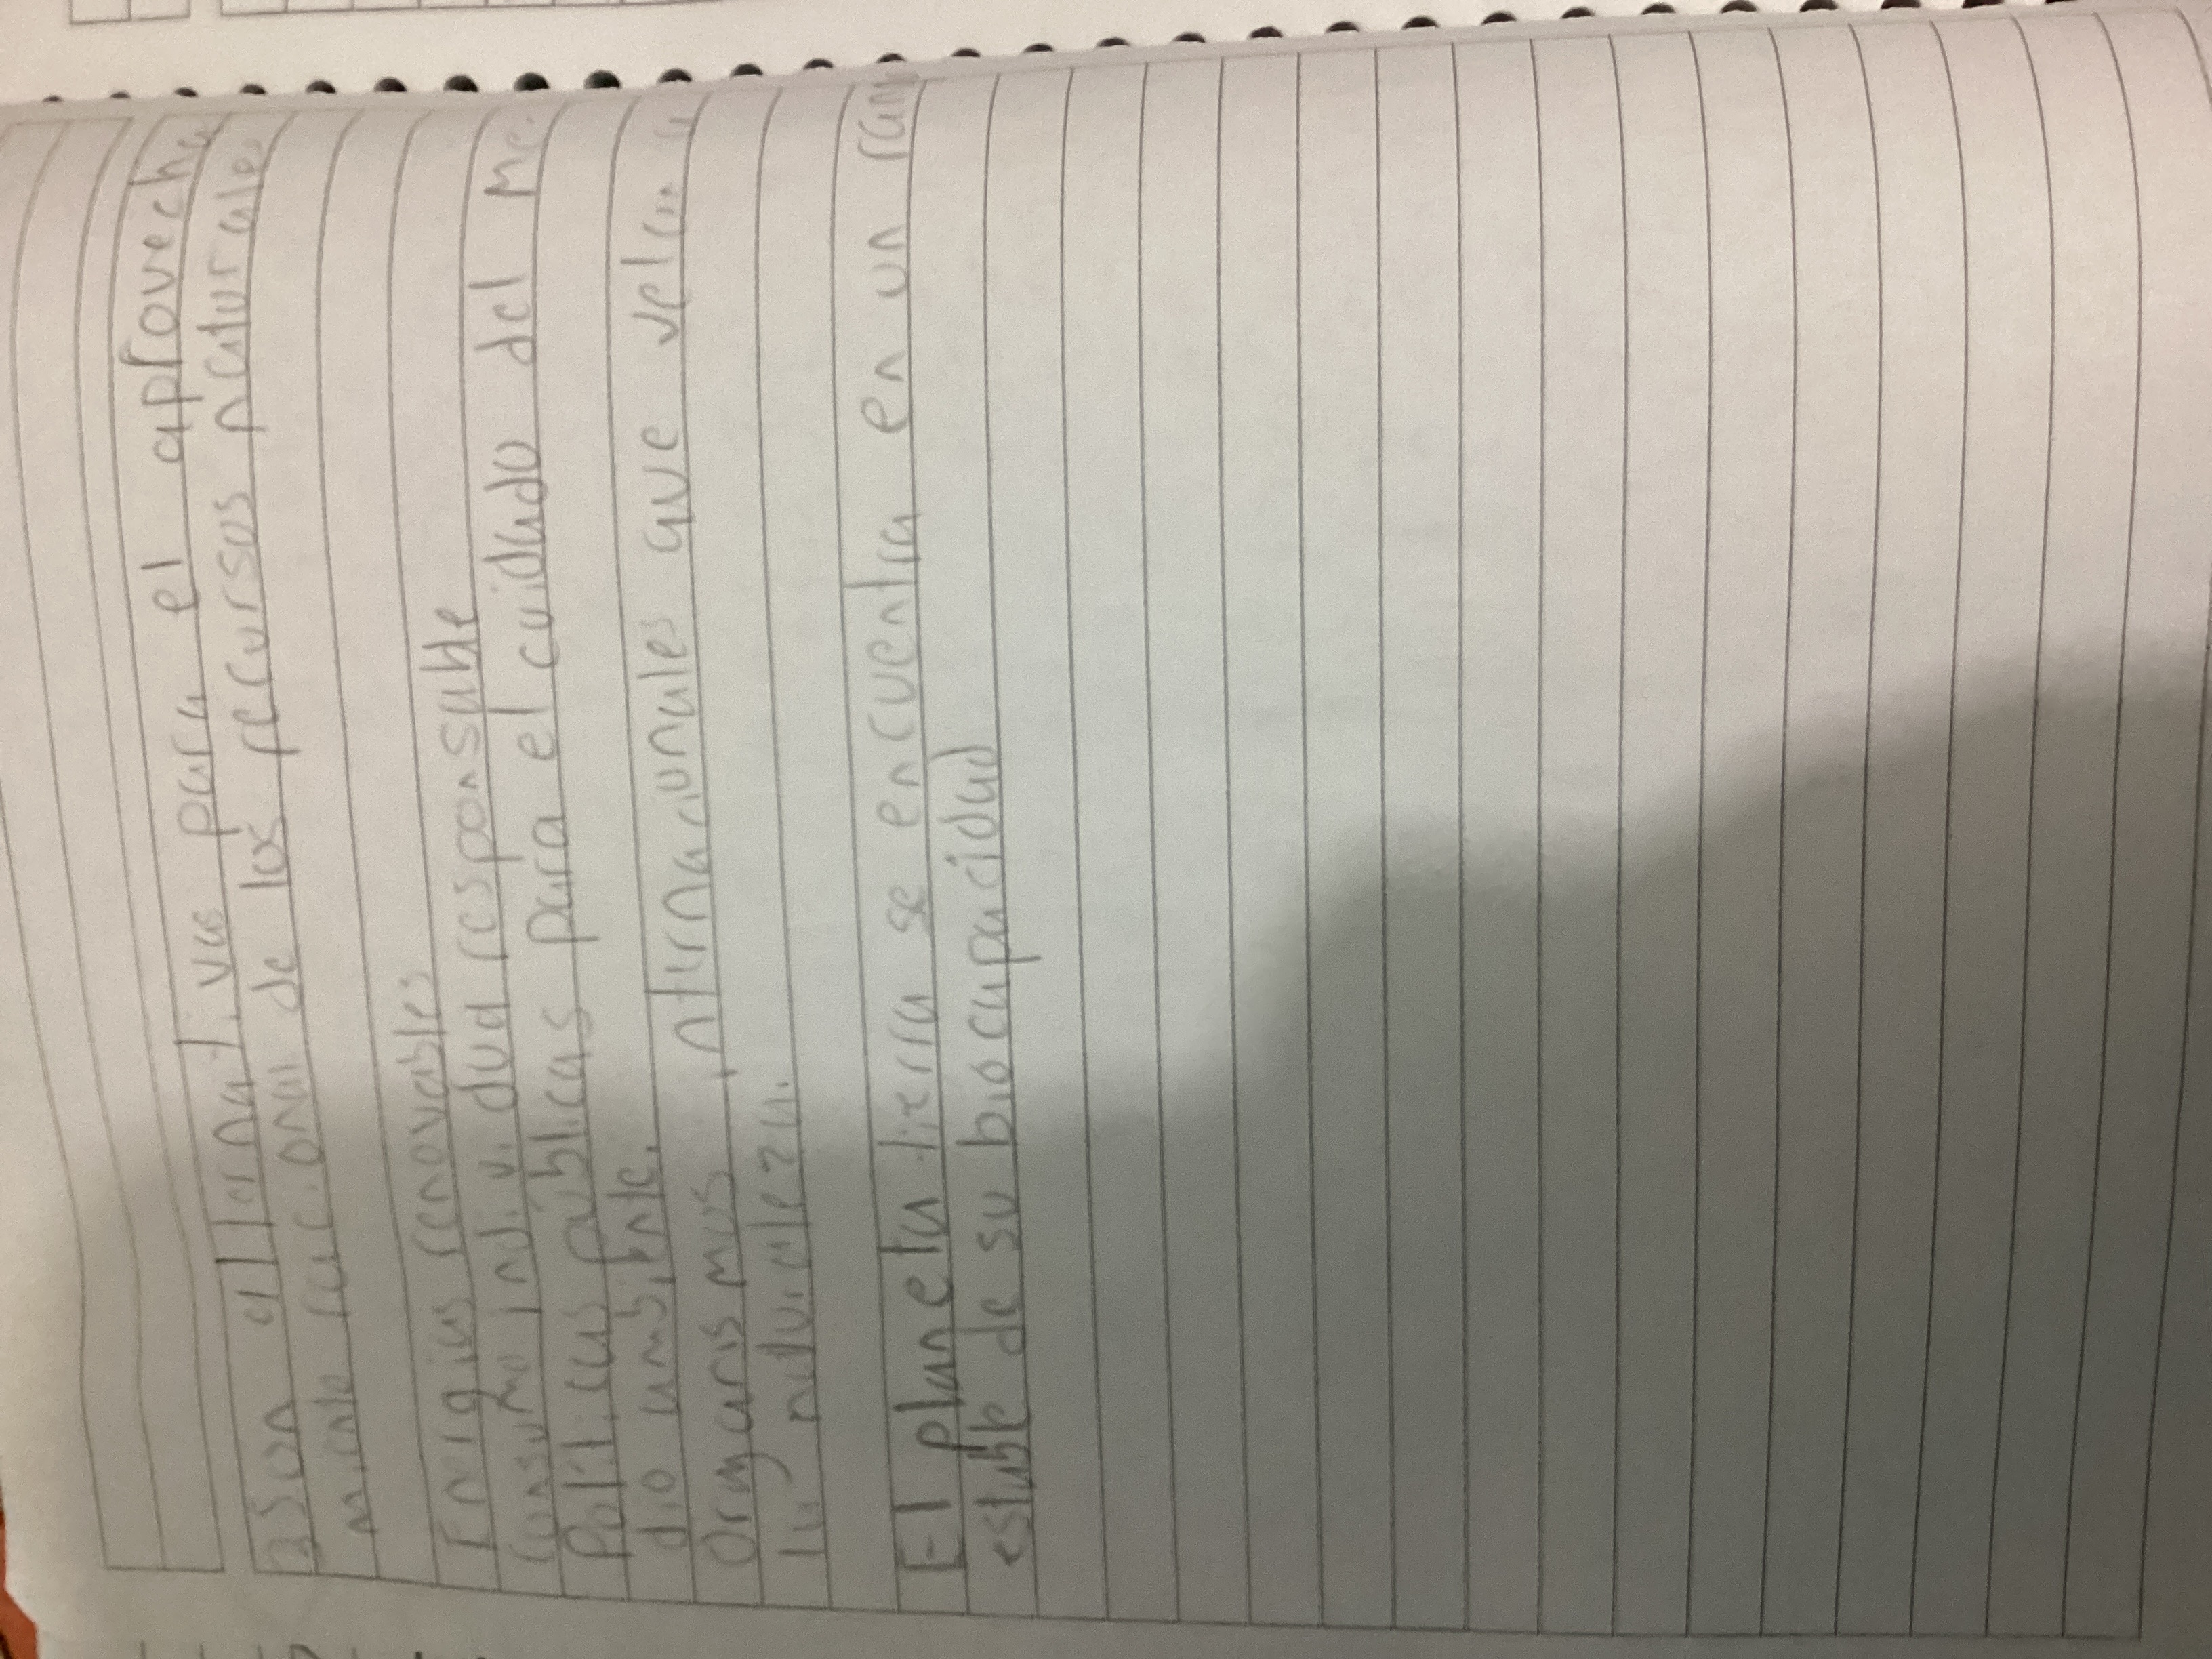 Son alternativas para el aprovecha
miento racional de los recursos naturales
Energias renovables
Consumo individual responsable
Politicas públicas para el cuidado del Me
dio ambiente.
Organismos internacionales que velan a
la naturaleza.
El planeta tierra se encuentra en un ran
estable de su biocapacidad